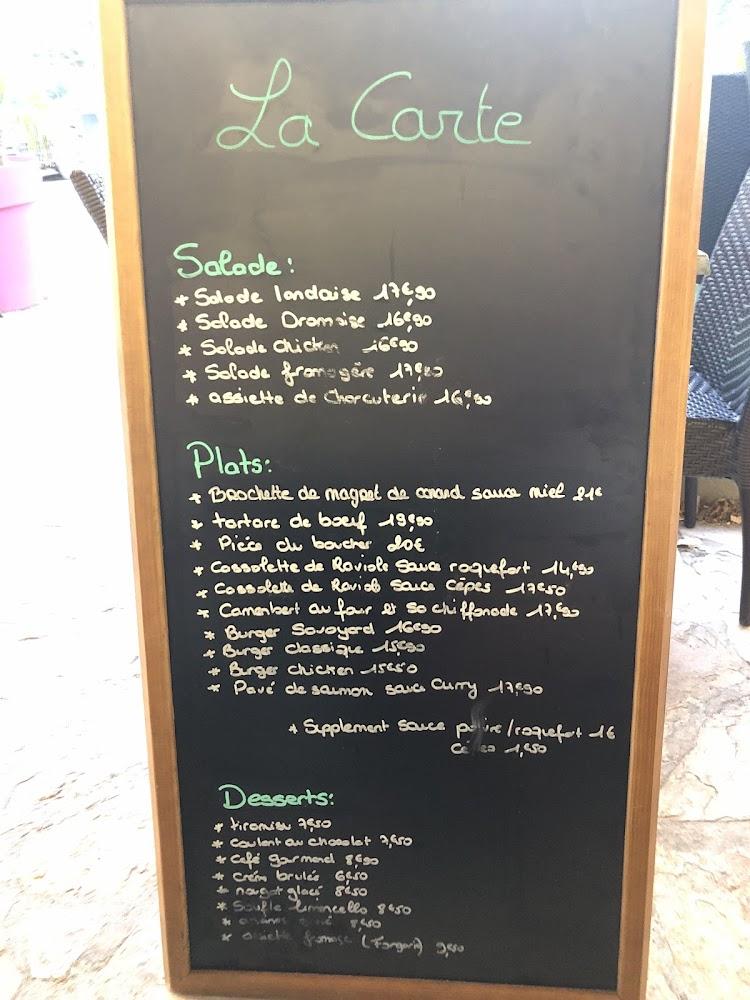 La Carte
Salade:
* Salade landaise 17€,90
* Salade Dromoise 16€,90
* Salade chicken 16€90
* Salade fromagère 17€,90
* assiette de Charcuterie 16,€90
Plats:
* Brochette de magret de canard sauce miel 21€
* tartare de bœuf 19€,90
* Pièce du boucher 20€
* Cassolette de Raviole Sauce roquefort 14,€90
* Cassolette de Ravioles Sauce Cèpes 17€50
* Camenbert au four et sa chiffonade 17,€90
* Burger Savoyard 16€90
* Burger classique 15€90
* Burger chicken 15€50
* Pavé de saumon sauce Curry 17€90
* Supplement sauce poivre/roquefort 1€
Cèpes 1,€50
Desserts:
* tiramisu 7€50
* coulant au chocolat 7,€50
* café gourmand 8€,90
* crém brulée 6€50
* nougat glacé 8€50
* Soufle limoncello 8€50
* 8,€50
* assiette fromage 9,€50